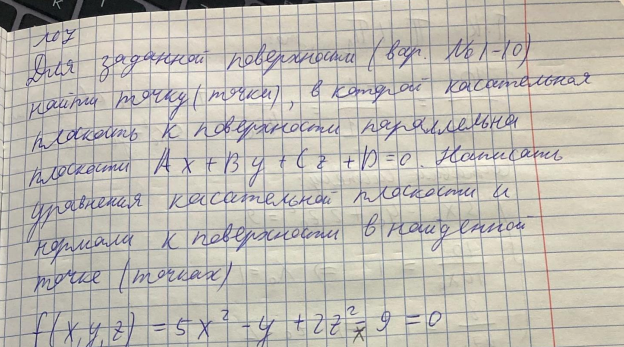 №7
Для заданной поверхности (вар. №1-10)
найти точку (точки), в которой касательная
плоскость к поверхности параллельна
плоскости Ax + By + Cz + D = 0. Написать
уравнения касательной плоскости и
нормали к поверхности в найденной
точке (точках)
f(x,y,z) = 5x² - y + 2z² - 9 = 0